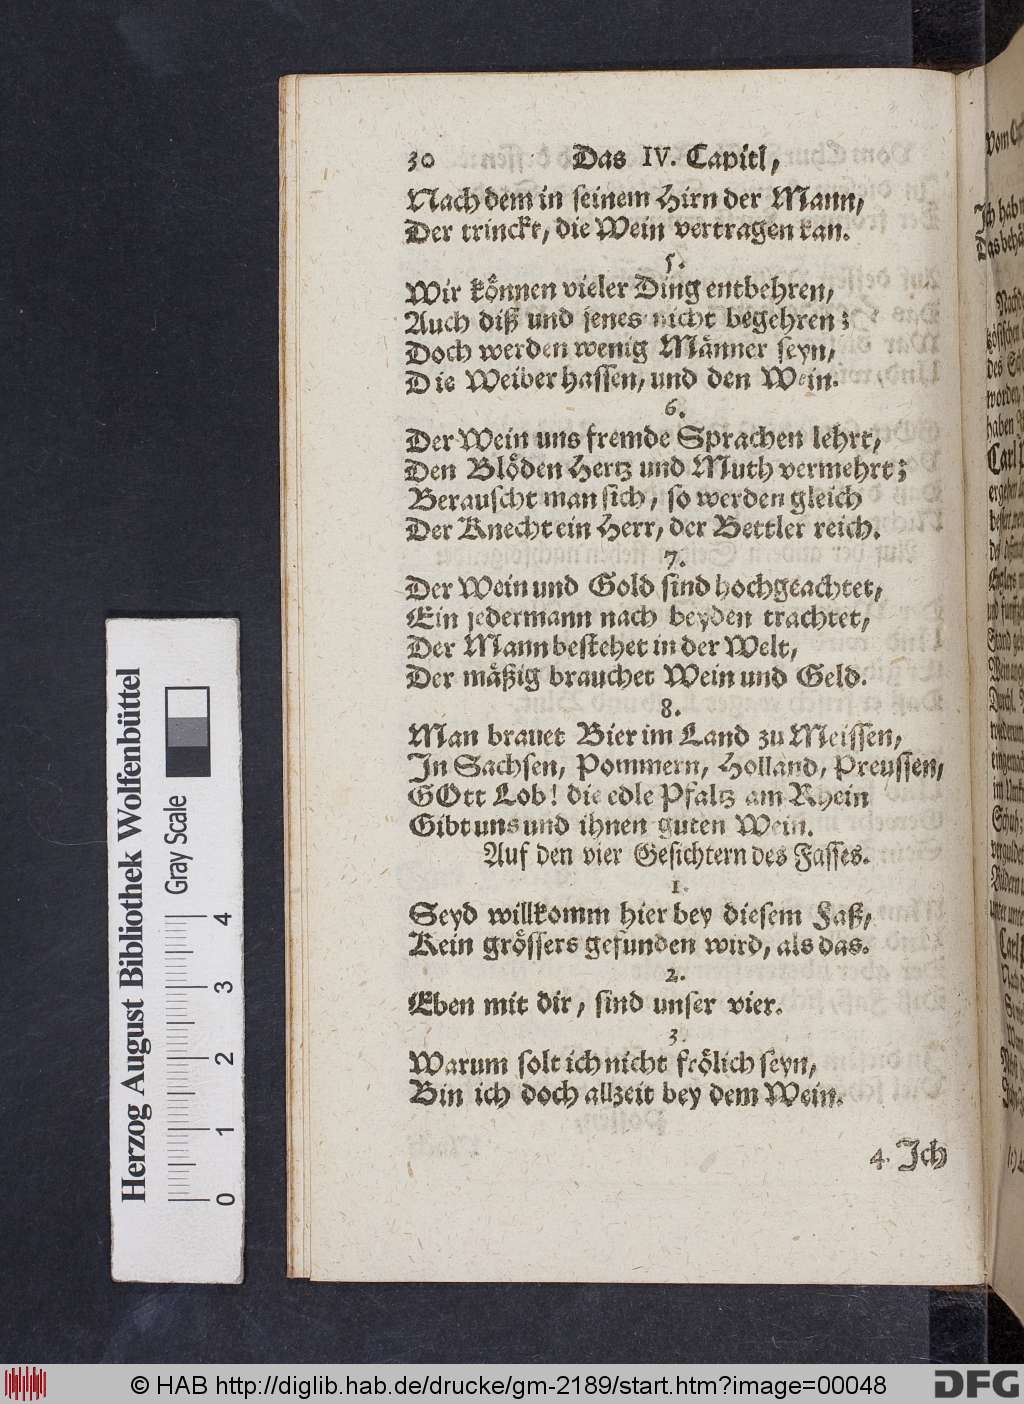 30 Das IV. Capitl,
Nach dem in seinem Hirn der Mann,
Der trinckt, die Wein vertragen kan.
5.
Wir können vieler Ding entbehren,
Auch diß und jenes nicht begehren;
Doch werden wenig Männer seyn,
Die Weiber hassen, und den Wein.
6.
Der Wein uns fremde Sprachen lehrt,
Den Blöden Hertz und Muth vermehrt;
Berauscht man sich, so werden gleich
Der Knecht ein Herr, der Bettler reich.
7.
Der Wein und Gold sind hochgeachtet,
Ein jedermann nach beyden trachtet,
Der Mann bestehet in der Welt,
Der mäßig brauchet Wein und Geld.
8.
Man brauet Bier im Land zu Meissen,
In Sachsen, Pommern, Holland, Preussen,
GOtt Lob! die edle Pfaltz am Rhein
Gibt uns und ihnen guten Wein.
Auf den vier Gesichtern des Fasses.
1.
Seyd willkomm hier bey diesem Faß,
Kein grössers gefunden wird, als das.
2.
Eben mit dir, sind unser vier.
3.
Warum solt ich nicht frölich seyn,
Bin ich doch allzeit bey dem Wein.
4. Ich
Herzog August Bibliothek Wolfenbüttel
Gray Scale
0 1 2 3 4
Ich hab
Carl
© HAB http://diglib.hab.de/drucke/gm-2189/start.htm?image=00048
DFG